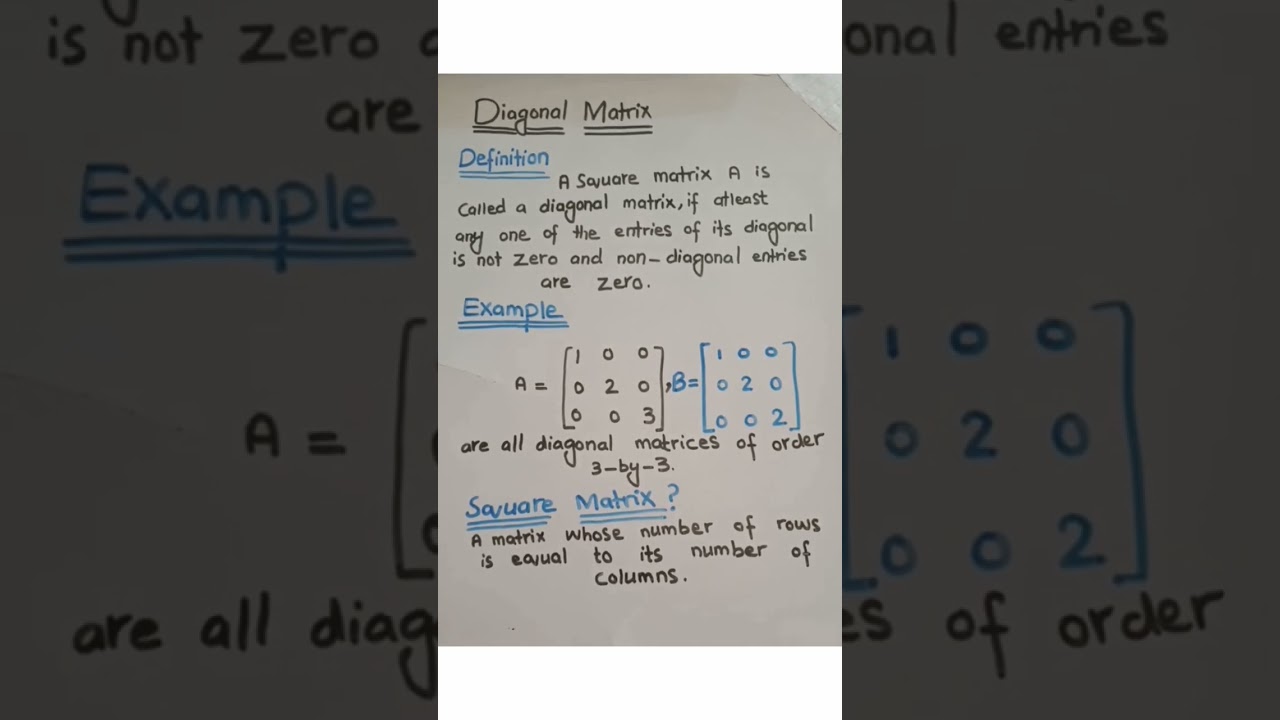 Diagonal Matrix
Definition
A Square matrix A is
Called a diagonal matrix, if atleast
any one of the entries of its diagonal
is not zero and non-diagonal entries
are zero.
Example
A = [1 0 0
0 2 0
0 0 3], B= [1 0 0
0 2 0
0 0 2]
are all diagonal matrices of order
3-by-3.
Square Matrix?
A matrix whose number of rows
is equal to its number of
Columns.